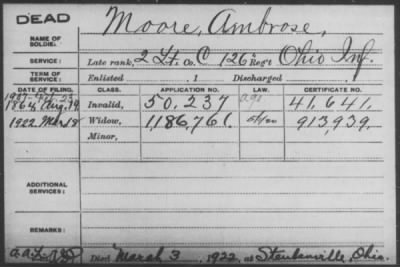 DEAD
NAME OF SOLDIER: Moore, Ambrose,
SERVICE: Late rank, 2 Lt. Co. C 126" Reg't Ohio Inf.
TERM OF SERVICE: Enlisted , 1 Discharged , 1
DATE OF FILING. CLASS. APPLICATION NO. LAW. CERTIFICATE NO.
1864 Aug. Invalid, 50,237 41,641,
1922 Mar Widow, 1,186,761. 913,939.
Minor,
ADDITIONAL SERVICES:
REMARKS:
Died March 3, 1922, at Steubenville, Ohio.